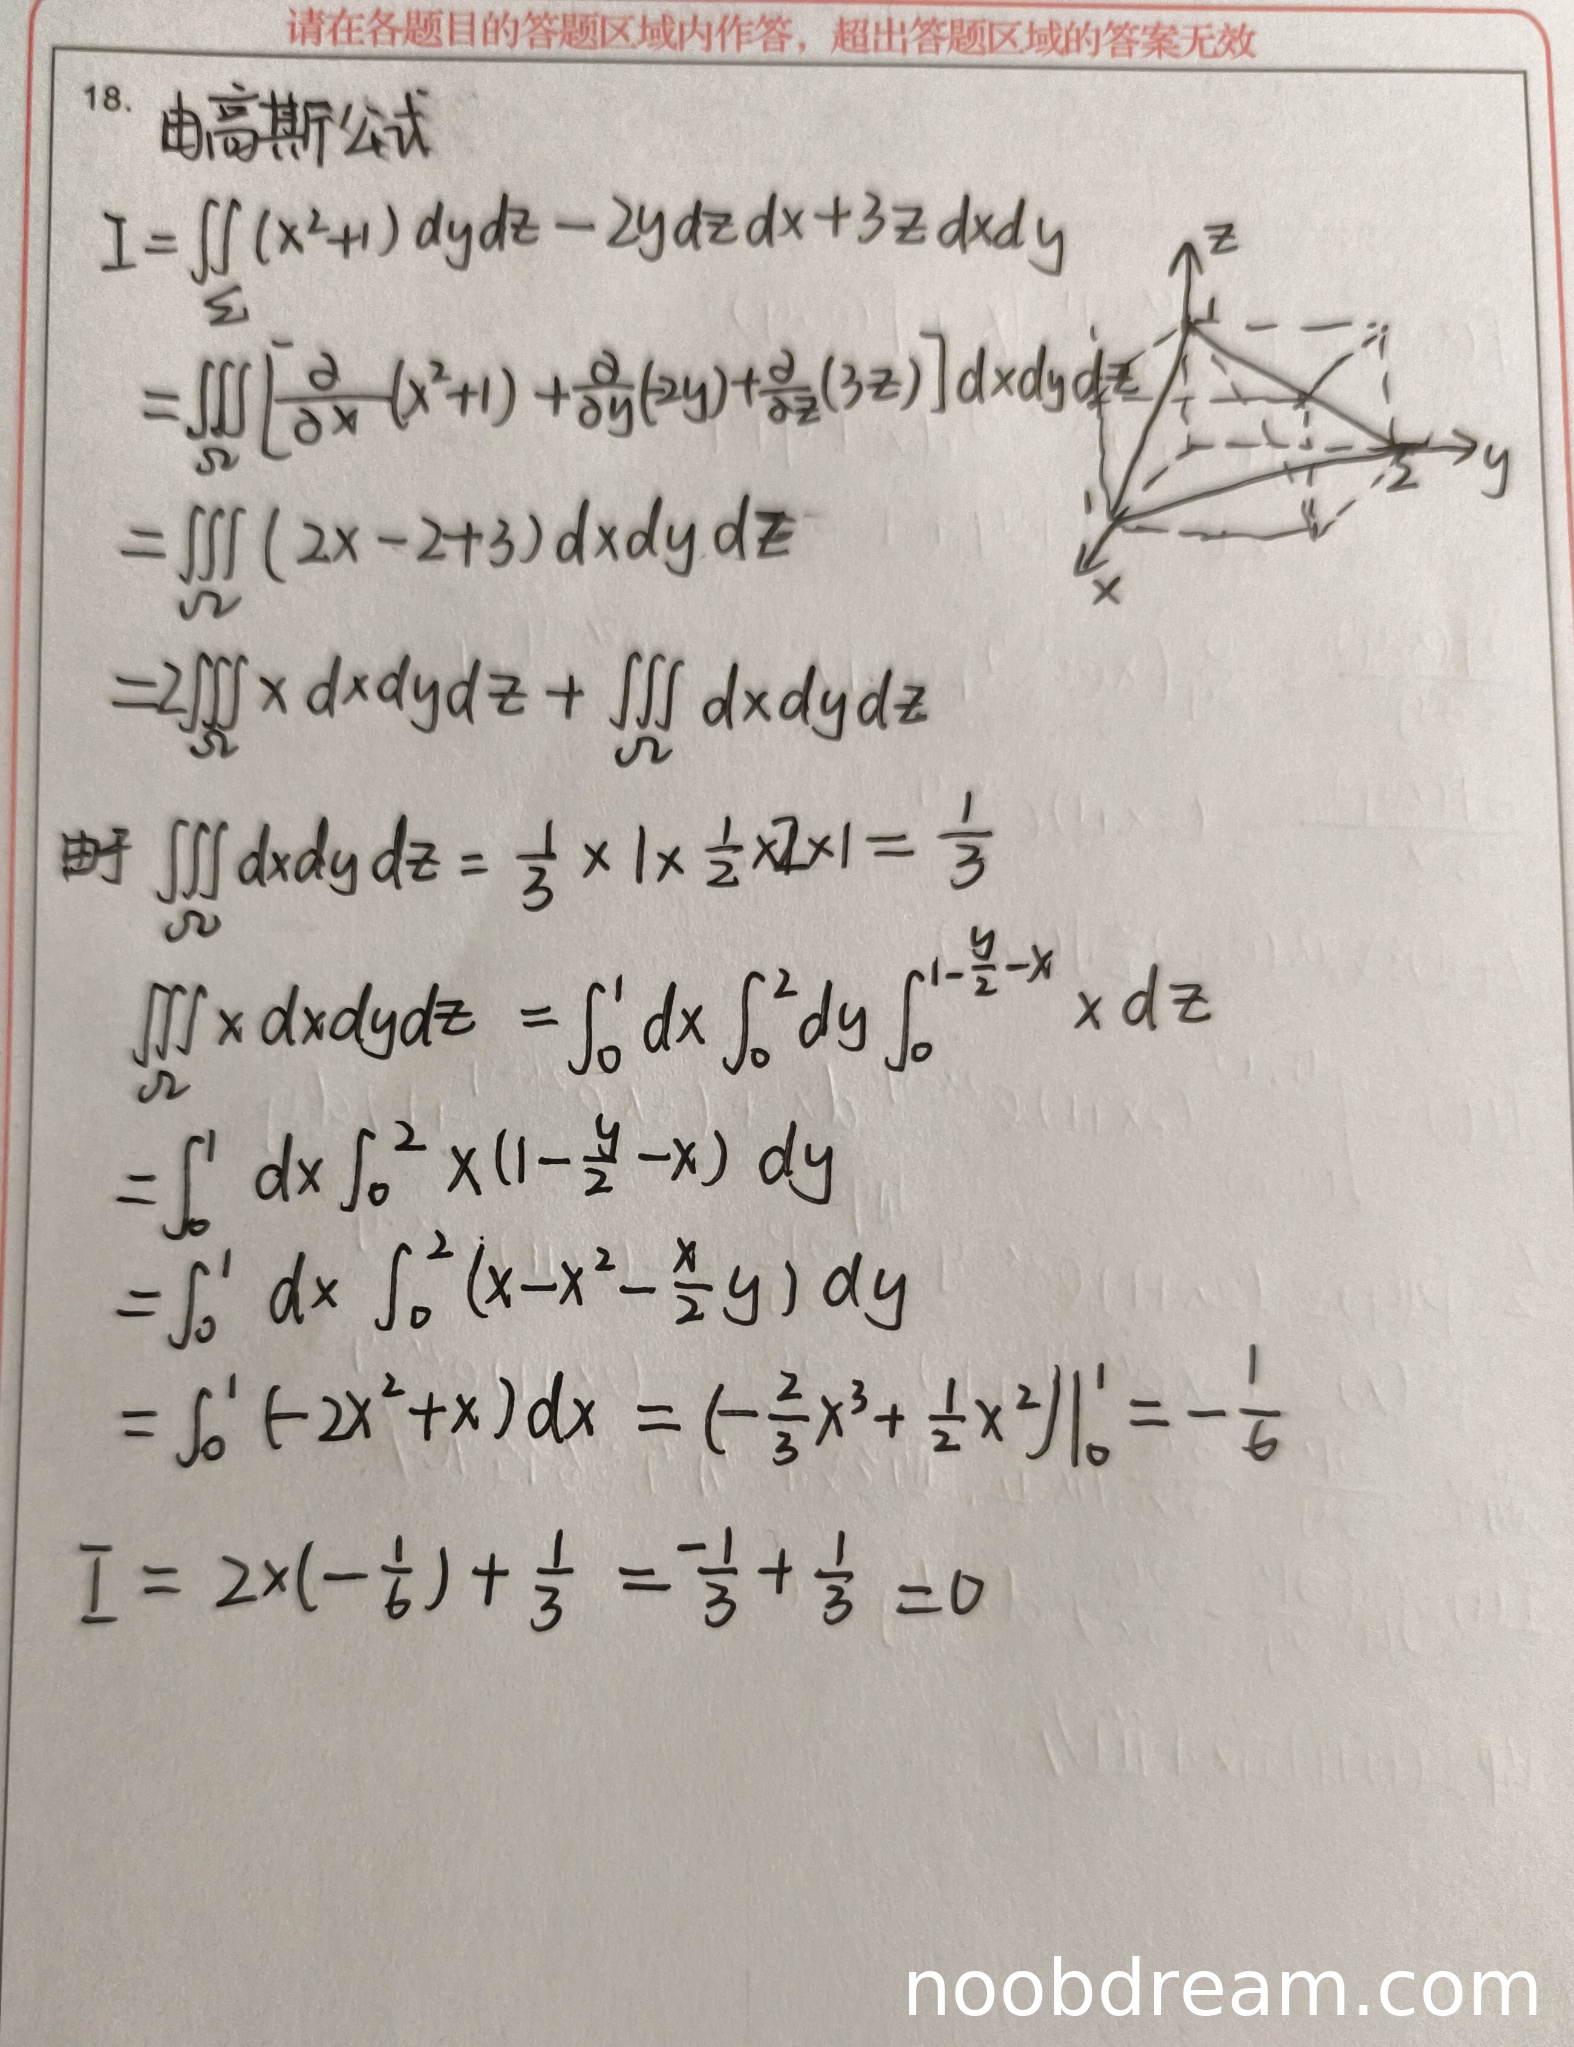 请在各题目的答题区域内作答，超出答题区域的答案无效
18. 由高斯公式
I = ∬_Σ (x²+1) dydz − 2y dz dx + 3z dxdy
= ∭_Ω [∂/∂x (x²+1) + ∂/∂y (-2y) + ∂/∂z (3z)] dxdydz
= ∭_Ω (2x − 2+3) dxdydz
= 2∭_Ω x dxdydz + ∭_Ω dxdydz
由于 ∭_Ω dxdydz = 1/3 × 1 × 1/2 × 2 × 1 = 1/3
∭_Ω x dxdydz = ∫₀¹ dx ∫₀² dy ∫₀^(1−y/2−x) x dz
= ∫₀¹ dx ∫₀² x(1 − y/2 − x) dy
= ∫₀¹ dx ∫₀² (x − x² − x/2 y) dy
= ∫₀¹ (−2x² + x) dx = (−2/3 x³ + 1/2 x²)|₀¹ = −1/6
I = 2×(−1/6) + 1/3 = −1/3 + 1/3 = 0
z
1
1
y
2
x
noobdream.com